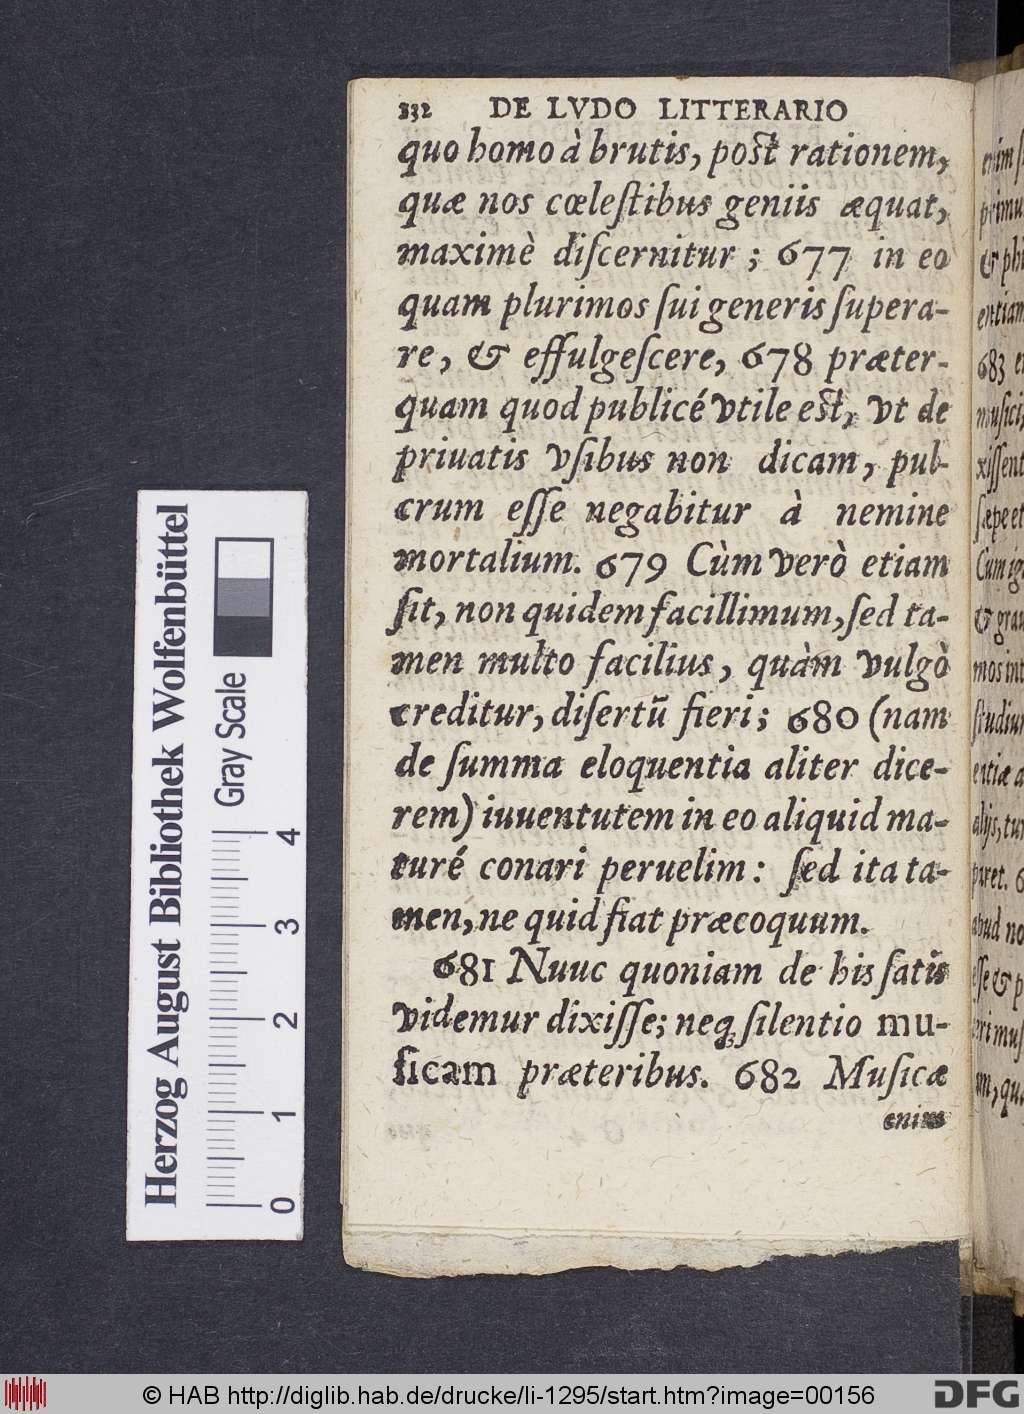 132 DE LVDO LITTERARIO
quo homo à brutis, post rationem,
quæ nos cœleſtibus geniis æquat,
maximè diſcernitur ; 677 in eo
quam plurimos ſui generis ſupera-
re, & effulgeſcere, 678 præter-
quam quod publicé vtile est, vt de
priuatis vſibus non dicam, pul-
crum eſſe negabitur à nemine
mortalium. 679 Cùm verò etiam
ſit, non quidem facillimum, ſed ta-
men multo facilius, quàm vulgò
creditur, diſertū fieri; 680 (nam
de ſumma eloquentia aliter dice-
rem) iuuentutem in eo aliquid ma-
turé conari peruelim: ſed ita ta-
men, ne quid fiat præcoquum.
681 Nuuc quoniam de his ſatis
videmur dixiſſe; neq; ſilentio mu-
ſicam præteribus. 682 Muſicæ
enim
Herzog August Bibliothek Wolfenbüttel
Gray Scale
0 1 2 3 4
primu
& phi
entiam
683
muſici,
xiſſent
ſæpe et
Cum ig
& grau
mos int
ſtudiu
entiæ a
alijs, tu
paret. 6
apud no
eſſe & p
am, qua
© HAB http://diglib.hab.de/drucke/li-1295/start.htm?image=00156
DFG